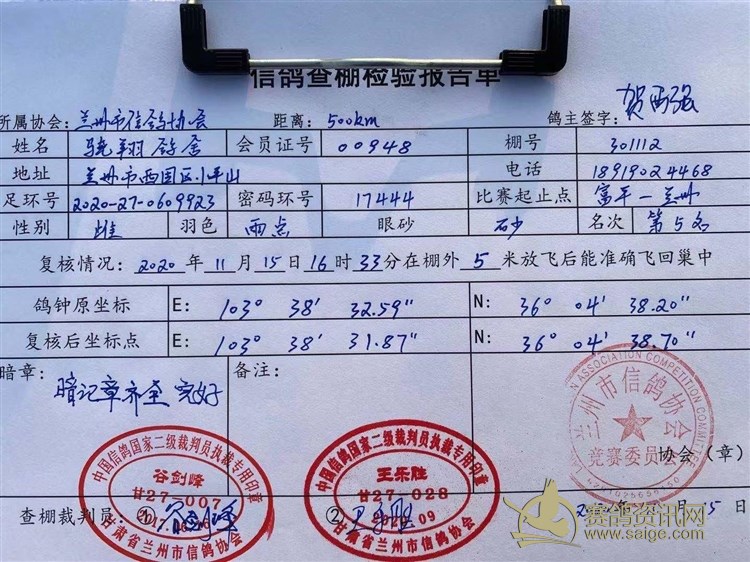 信鸽查棚检验报告单
所属协会: 兰州市信鸽协会 距离: 500km 鸽主签字: 贺西强
姓名 骁翔鸽舍 会员证号 00948 棚号 301112
地址 兰州市西固区小坪山 电话 18919024468
足环号 2020-27-0609923 密码环号 17444 比赛起止点 富平—兰州
性别 雌 羽色 雨点 眼砂 砂 名次 第5名
复核情况: 2020 年 11 月 15 日 16 时 33 分在棚外 5 米放飞后能准确飞回巢中
鸽钟原坐标 E: 103° 38' 32.59" N: 36° 04' 38.20"
复核后坐标点 E: 103° 38' 31.87" N: 36° 04' 38.70"
暗章: 备注:
暗记章齐全 完好
ASSOCIATION COMPETITION COMMITTEE
兰州市信鸽协会
竞赛委员会
协会（章）
中国信鸽国家二级裁判员执裁专用印章
谷剑峰
甘27-007
甘肃省兰州市信鸽协会
中国信鸽国家二级裁判员执裁专用印章
王乐胜
甘27-028
甘肃省兰州市信鸽协会
查棚裁判员: ① ② 月 15 日
赛鸽资讯网
www.saige.com